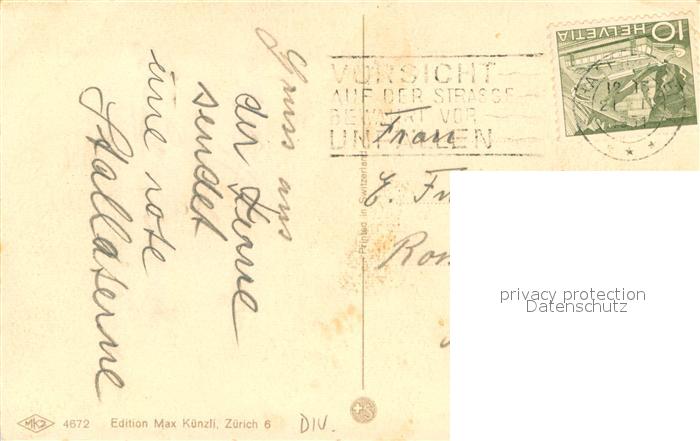 Gruss aus
der Ferne
sendet
eine rote
Stallaterne
VORSICHT
AUF DER STRASSE
BEWAHRT VOR
UNFÄLLEN
10 HELVETIA
Frau
E.
Printed in Switzerland
privacy protection
Datenschutz
MKZ 4672 Edition Max Künzli, Zürich 6
DIV.